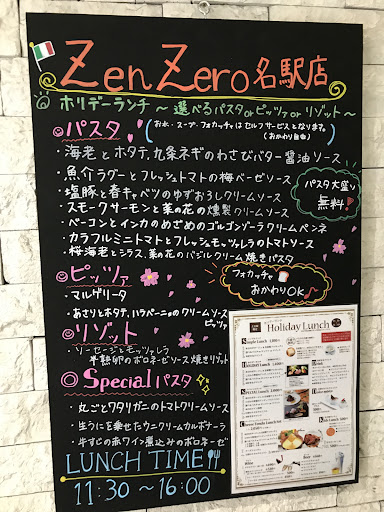 ZenZero名駅店
ホリデーランチ 〜選べるパスタorピッツァorリゾット〜
パスタ
(お水・スープ・フォカッチャはセルフサービスとなります。
(おかわり自由)
・海老とホタテ、九条ネギのわさびバター醤油ソース
・魚介ラグーとフレッシュトマトの梅ペーゼソース
・塩豚と春キャベツのゆずおろしクリームソース
・スモークサーモンと菜の花の燻製クリームソース
・ベーコンとインカのめざめのゴルゴンゾーラクリームペンネ
・カラフルミニトマトとフレッシュモッツァレラのトマトソース
・桜海老とシラス、菜の花のバジルクリーム焼きパスタ
パスタ大盛り
無料!
ピッツァ
・マルゲリータ
・あさりとホタテ、ハラペーニョのクリームソース
ピッツァ
フォカッチャ
おかわりOK♪
リゾット
・ソーセージとモッツァレラ
半熟卵のボロネーゼソース焼きリゾット
Specialパスタ
・丸ごとワタリガニのトマトクリームソース
・生うにを乗せたウニクリームカルボナーラ
・牛すじの赤ワイン煮込みのボロネーゼ
LUNCH TIME
11:30〜16:00
Holiday Lunch